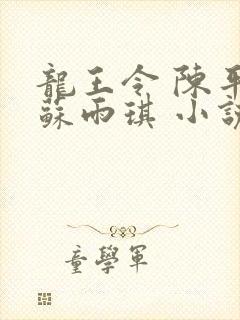 龍王令 陳平
蘇雨琪 小說
童學軍